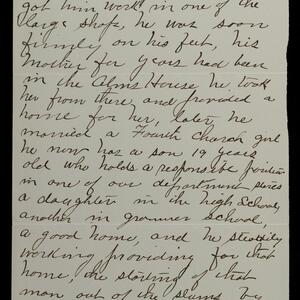 got him work in one of the
large shops, he was soon
firmly, on his feet, his
Mother for years had been
in the Alms House he took
her from there, and provided a
home for her, later, he
married a Fourth Church girl
he now has a son 19 years
old who holds a responsible position
in one of our department stores
a daughter in the high School,
another in grammer school,
a good home, and he steadily
working providing for that
home, the starting of that
man out of the slums by